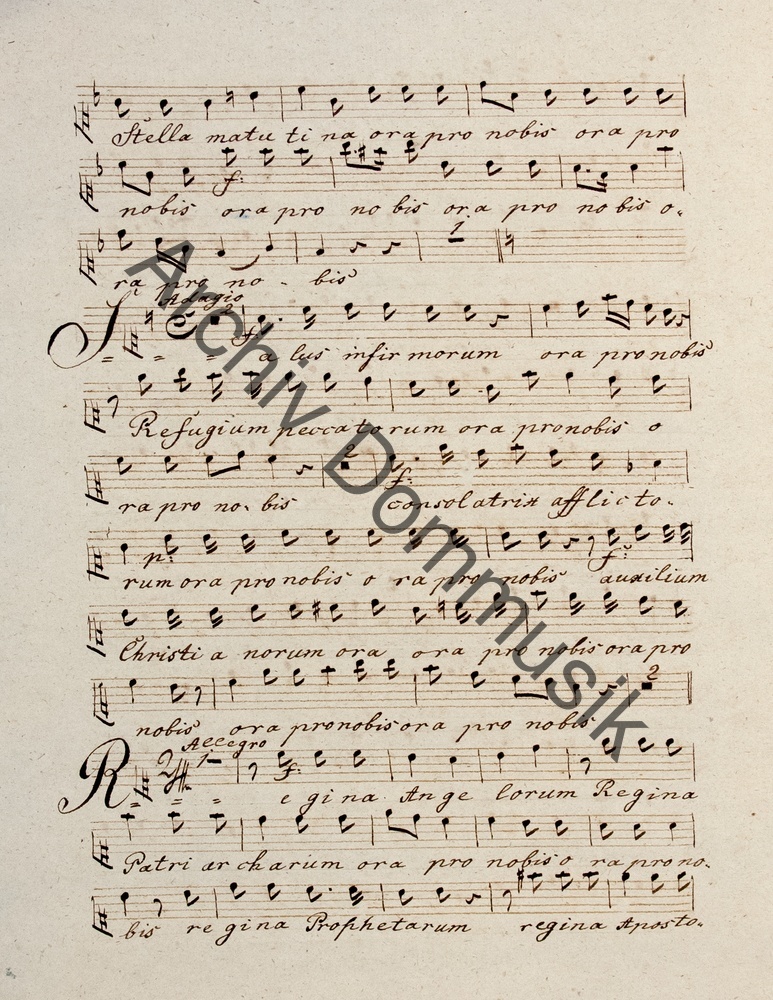 Stella matu ti na ora pro nobis ora pro
f:
nobis ora pro no bis ora pro no bis o-
1
ra pro no - bis
Adagio
2
f
S = = = a lus infir morum ora pro nobis
Refugium peccatorum ora pronobis o
2
f:
ra pro no- bis consolatrix afflicto-
p: f:
rum ora pro nobis o ra pro nobis auxilium
Christi a norum ora ora pro nobis ora pro
2
nobis ora pronobis ora pro nobis
Allegro
2 1
f:
R = = = e gi na Ange lorum Regina
Patri ar charum ora pro nobis o ra pro no-
bis re gina Prophetarum regina Aposto-
Archiv Dommusik